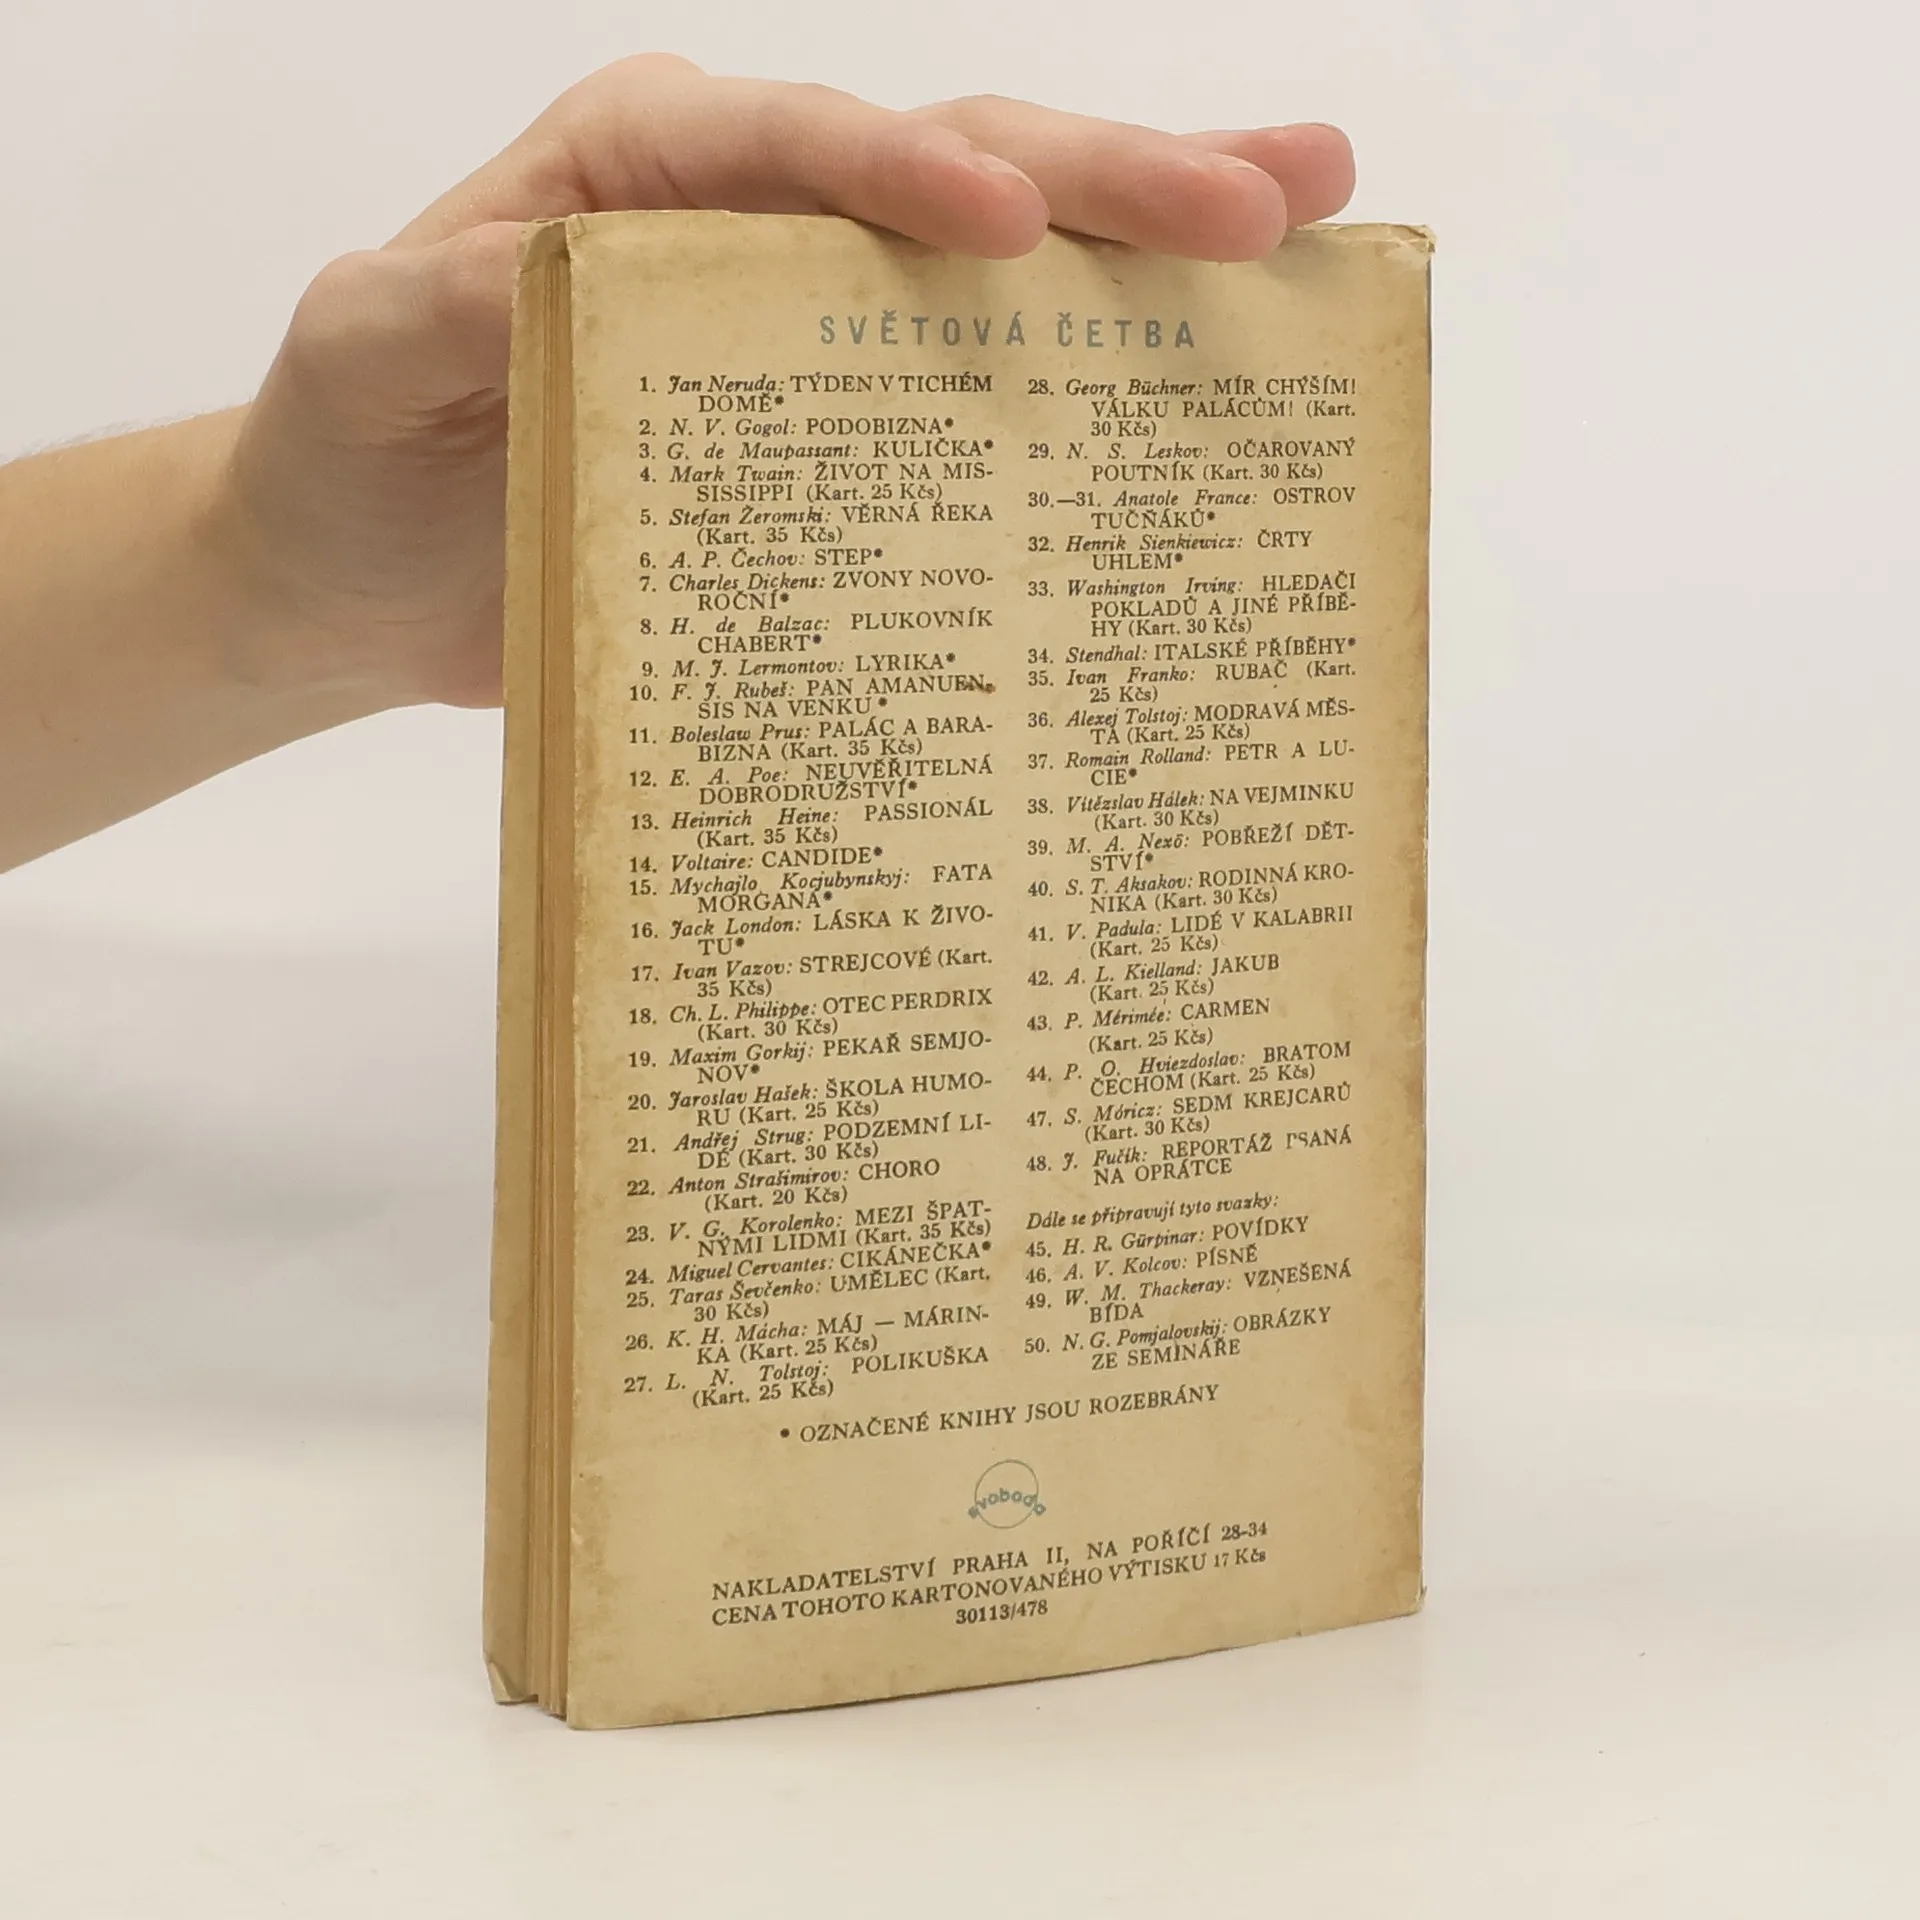 SVĚTOVÁ ČETBA
1. Jan Neruda: TÝDEN V TICHÉM
DOMĚ•
2. N. V. Gogol: PODOBIZNA•
3. G. de Maupassant: KULIČKA•
4. Mark Twain: ŽIVOT NA MIS-
SISSIPPI (Kart. 25 Kčs)
5. Stefan Żeromski: VĚRNÁ ŘEKA
(Kart. 35 Kčs)
6. A. P. Čechov: STEP•
7. Charles Dickens: ZVONY NOVO-
ROČNÍ•
8. H. de Balzac: PLUKOVNÍK
CHABERT•
9. M. J. Lermontov: LYRIKA•
10. F. J. Rubeš: PAN AMANUEN-
SIS NA VENKU•
11. Boleslaw Prus: PALÁC A BARA-
BIZNA (Kart. 35 Kčs)
12. E. A. Poe: NEUVĚŘITELNÁ
DOBRODRUŽSTVÍ•
13. Heinrich Heine: PASSIONÁL
(Kart. 35 Kčs)
14. Voltaire: CANDIDE•
15. Mychajlo Kocjubynskyj: FATA
MORGANA•
16. Jack London: LÁSKA K ŽIVO-
TU•
17. Ivan Vazov: STREJCOVÉ (Kart.
35 Kčs)
18. Ch. L. Philippe: OTEC PERDRIX
(Kart. 30 Kčs)
19. Maxim Gorkij: PEKAŘ SEMJO-
NOV•
20. Jaroslav Hašek: ŠKOLA HUMO-
RU (Kart. 25 Kčs)
21. Andřej Strug: PODZEMNÍ LI-
DÉ (Kart. 30 Kčs)
22. Anton Strašimirov: CHORO
(Kart. 20 Kčs)
23. V. G. Korolenko: MEZI ŠPAT-
NÝMI LIDMI (Kart. 35 Kčs)
24. Miguel Cervantes: CIKÁNEČKA•
25. Taras Ševčenko: UMĚLEC (Kart.
30 Kčs)
26. K. H. Mácha: MÁJ — MÁRIN-
KA (Kart. 25 Kčs)
27. L. N. Tolstoj: POLIKUŠKA
(Kart. 25 Kčs)
28. Georg Büchner: MÍR CHÝŠÍM!
VÁLKU PALÁCŮM! (Kart.
30 Kčs)
29. N. S. Leskov: OČAROVANÝ
POUTNÍK (Kart. 30 Kčs)
30.—31. Anatole France: OSTROV
TUČŇÁKŮ•
32. Henrik Sienkiewicz: ČRTY
UHLEM•
33. Washington Irving: HLEDAČI
POKLADŮ A JINÉ PŘÍBĚ-
HY (Kart. 30 Kčs)
34. Stendhal: ITALSKÉ PŘÍBĚHY•
35. Ivan Franko: RUBAČ (Kart.
25 Kčs)
36. Alexej Tolstoj: MODRAVÁ MĚS-
TA (Kart. 25 Kčs)
37. Romain Rolland: PETR A LU-
CIE•
38. Vítězslav Hálek: NA VEJMINKU
(Kart. 30 Kčs)
39. M. A. Nexö: POBŘEŽÍ DĚT-
STVÍ•
40. S. T. Aksakov: RODINNÁ KRO-
NIKA (Kart. 30 Kčs)
41. V. Padula: LIDÉ V KALABRII
(Kart. 25 Kčs)
42. A. L. Kielland: JAKUB
(Kart. 25 Kčs)
43. P. Mérimée: CARMEN
(Kart. 25 Kčs)
44. P. O. Hviezdoslav: BRATOM
ČECHOM (Kart. 25 Kčs)
47. S. Móricz: SEDM KREJCARŮ
(Kart. 30 Kčs)
48. J. Fučík: REPORTÁŽ PSANÁ
NA OPRÁTCE
Dále se připravují tyto svazky:
45. H. R. Gürpinar: POVÍDKY
46. A. V. Kolcov: PÍSNĚ
49. W. M. Thackeray: VZNEŠENÁ
BÍDA
50. N. G. Pomjalovskij: OBRÁZKY
ZE SEMINÁŘE
• OZNAČENÉ KNIHY JSOU ROZEBRÁNY
svoboda
NAKLADATELSTVÍ PRAHA II, NA POŘÍČÍ 28-34
CENA TOHOTO KARTONOVANÉHO VÝTISKU 17 Kčs
30113/478